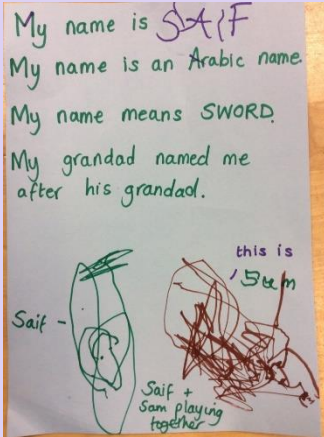 My name is SAIF
My name is an Arabic name.
My name means SWORD.
My grandad named me
after his grandad.
this is
Sam
Saif -
Saif +
Sam playing
together